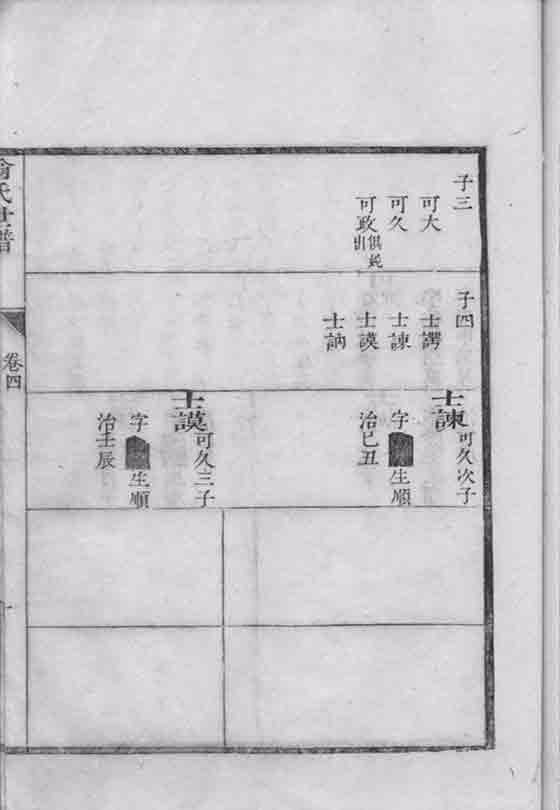 子三
可大
可久
可政俱姚出
子四
士諤
士諫
士謨
士訥
士諫可久次子
字
生順
治己丑
士謨可久三子
字
生順
治壬辰
俞氏世譜
卷四